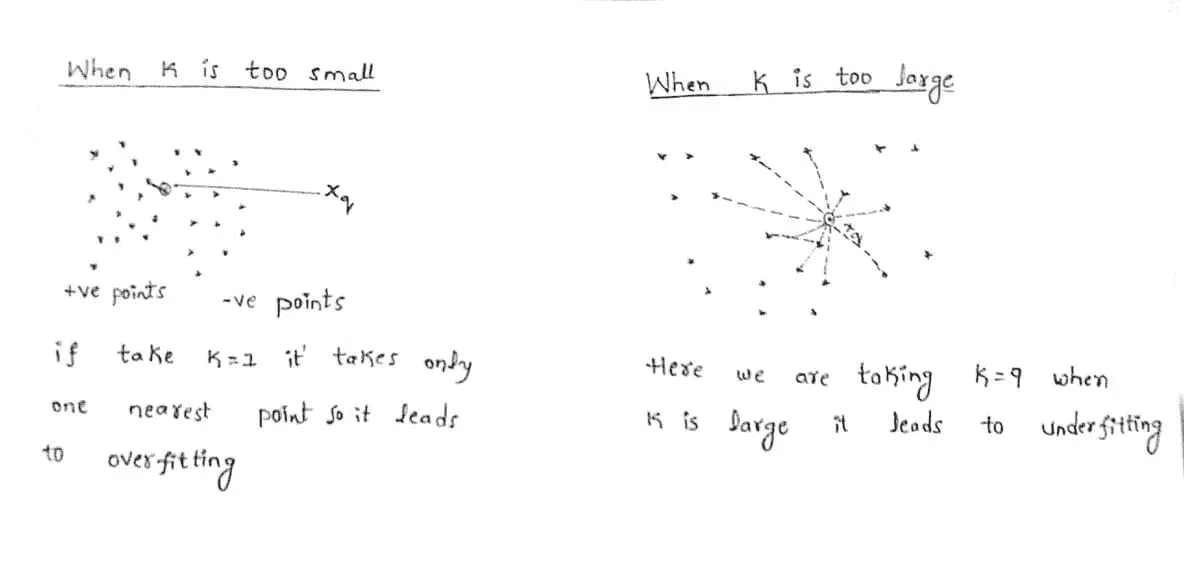 When K is too small
+ve points -ve points
if take K=1 it takes only
one nearest point so it leads
to overfitting
When K is too large
Here we are taking K=9 when
K is large it leads to underfitting
xq
xq